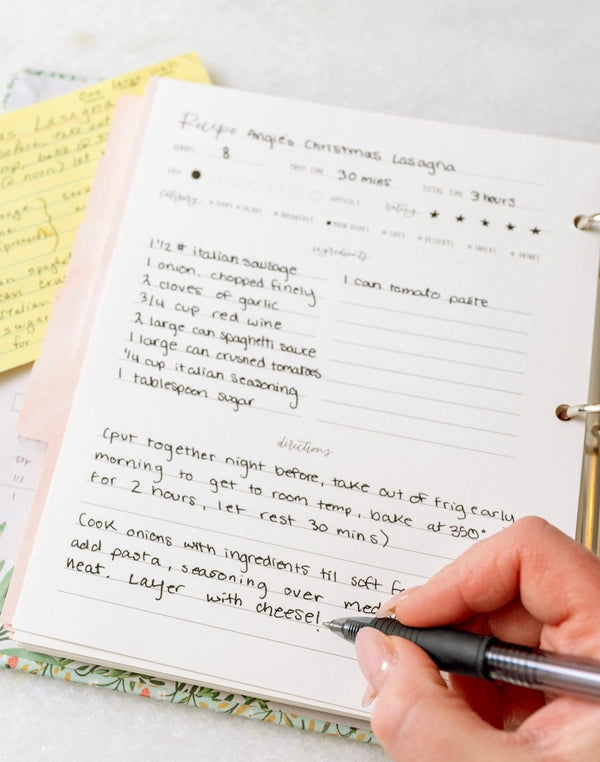 One large pan
Lasagna
before, take out
bake @
@ noon) let
spaghetti
Italian
sugar
for
top
1/2
1
Recipe Angie's Christmas Lasagna
SERVES 8 PREP TIME 30 mins TOTAL TIME 3 hours
EASY DIFFICULT rating ★ ★ ★ ★ ★
category SOUPS & SALADS BREAKFAST MAIN DISHES SIDES DESSERTS SNACKS DRINKS
ingredients
1 1/2 # italian sausage
1 onion, chopped finely
2 cloves of garlic
3/4 cup red wine
2 large can spaghetti sauce
1 large can crushed tomatoes
1/4 cup italian seasoning
1 tablespoon sugar
1 can tomato paste
directions
(put together night before, take out of frig early
morning to get to room temp, bake at 350°
for 2 hours, let rest 30 mins)
Cook onions with ingredients til soft
add pasta, seasoning over med
heat. Layer with cheese!